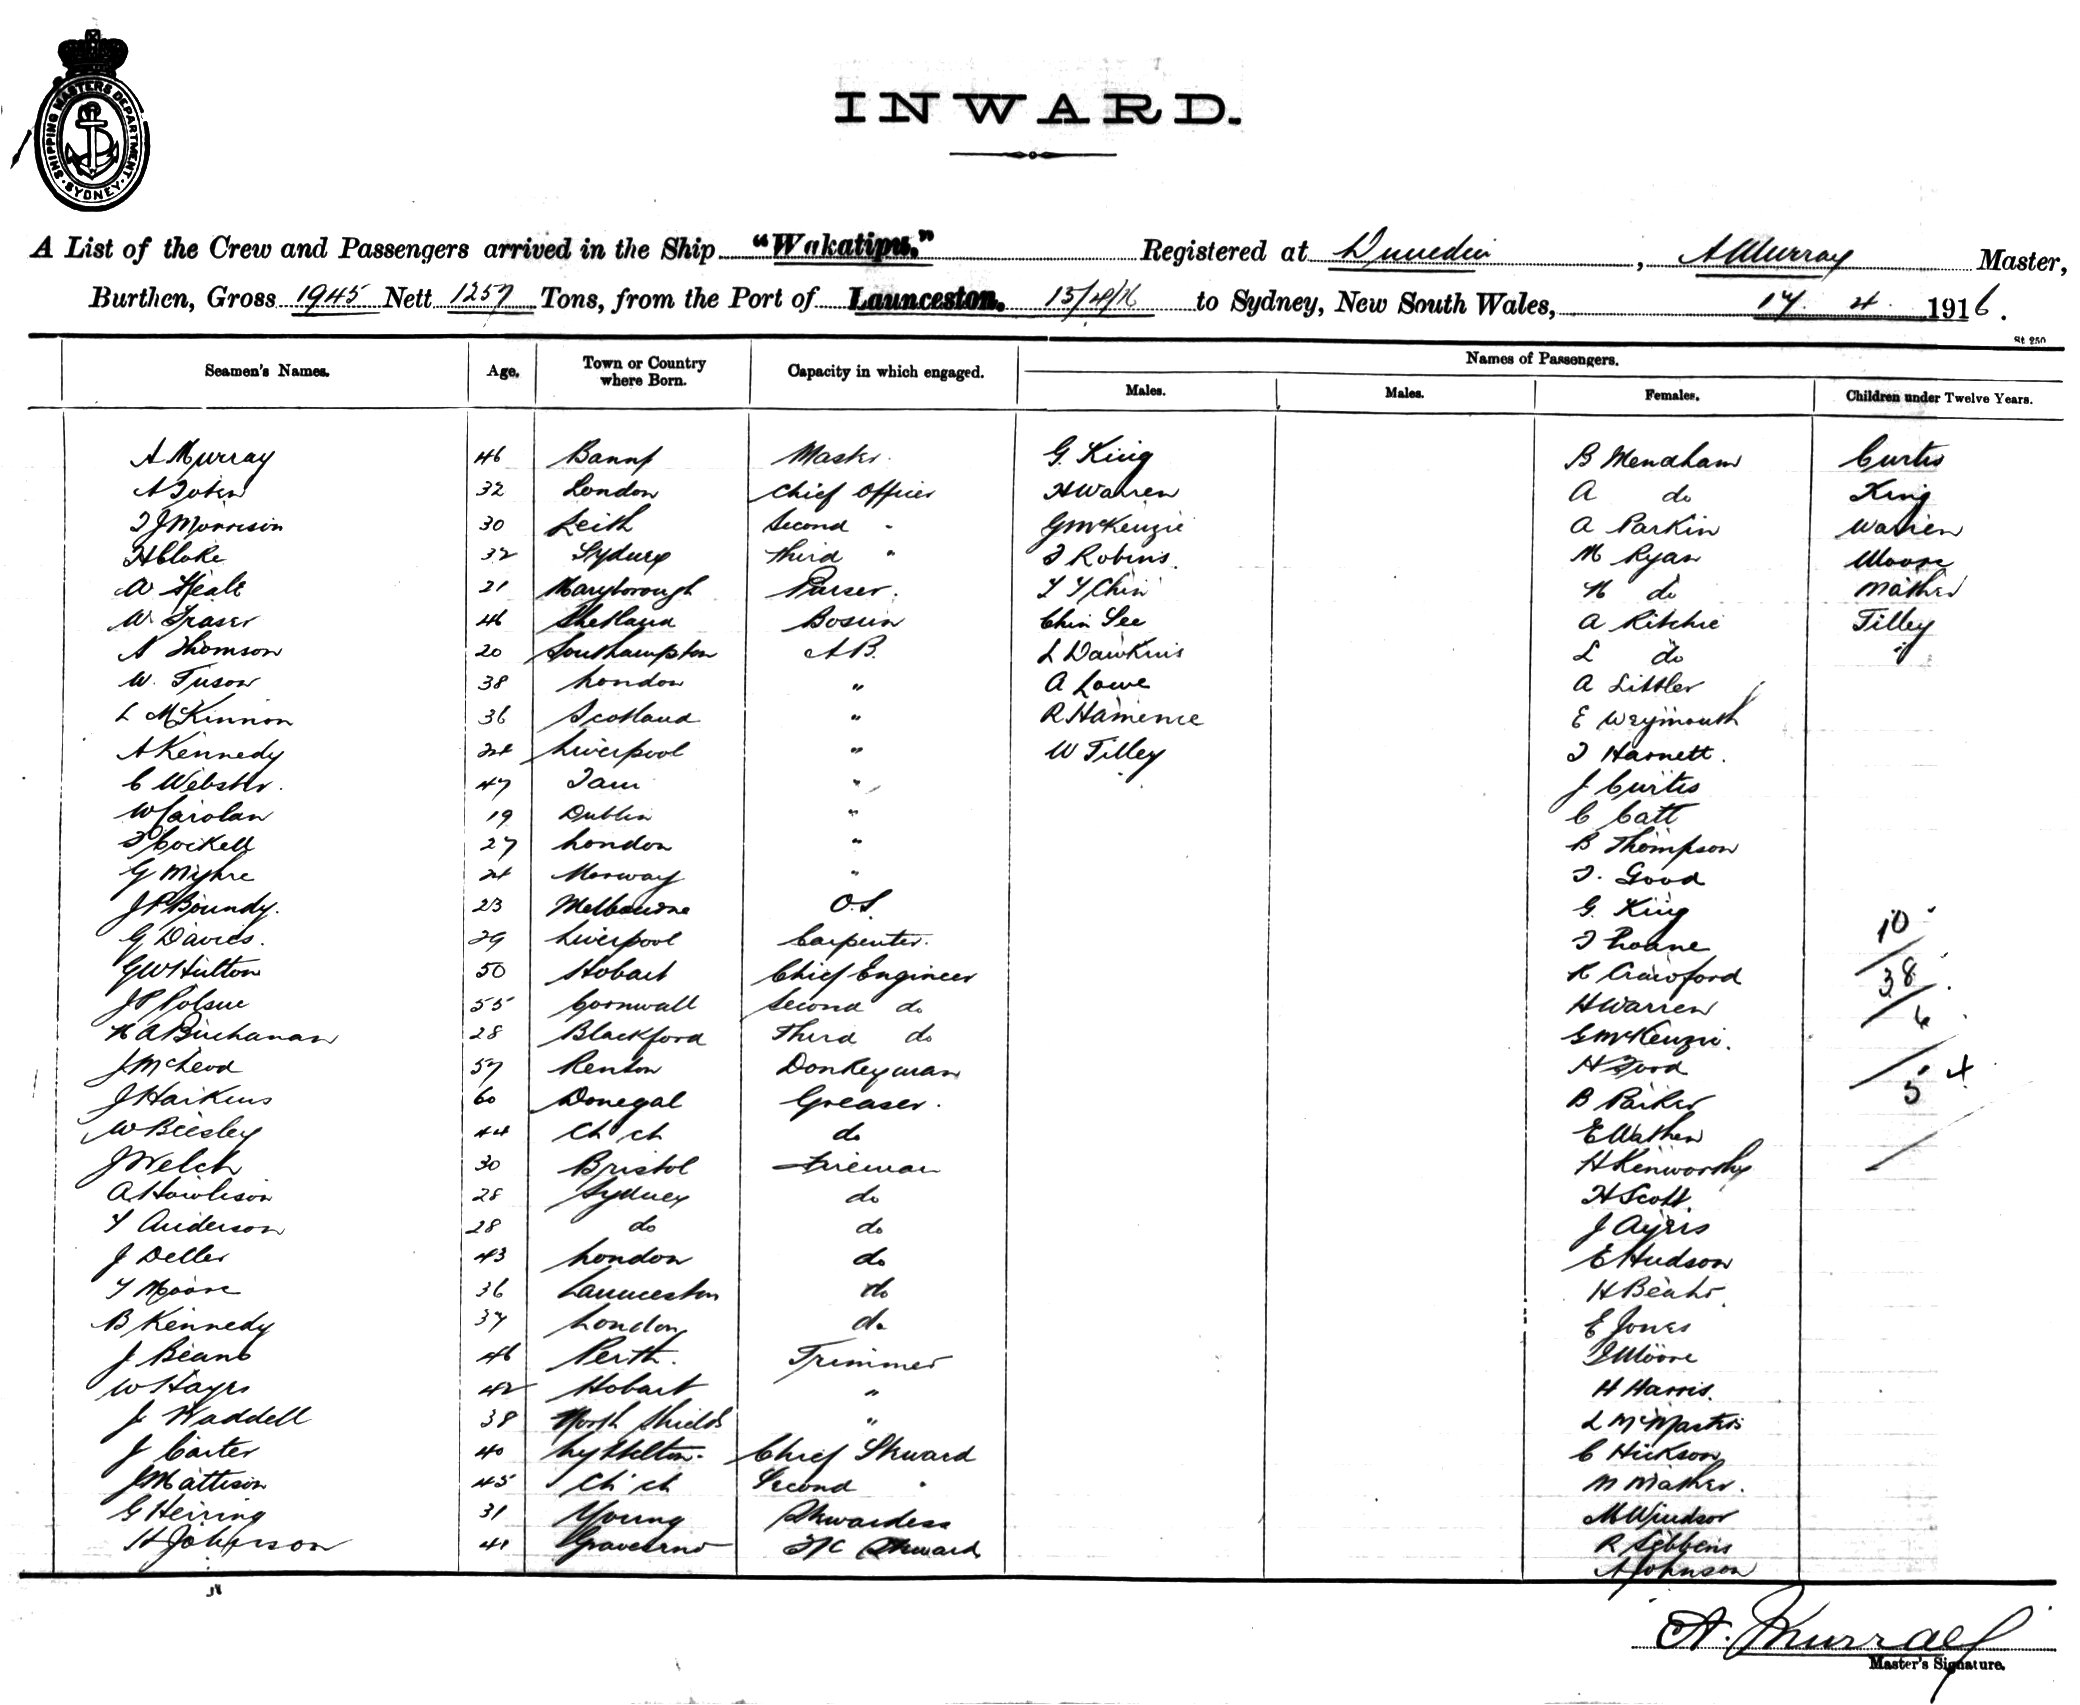 SHIPPING MASTERS DEPARTMENT. SYDNEY
INWARD.
A List of the Crew and Passengers arrived in the Ship "Wakatipu." Registered at Dunedin, A Murray Master,
Burthen, Gross 1945 Nett 1257 Tons, from the Port of Launceston. 15/4/16 to Sydney, New South Wales, 17. 4. 1916.
St 250
Seamen's Names. Age. Town or Country where Born. Capacity in which engaged. Names of Passengers.
Males. Males. Females. Children under Twelve Years.
A Murray 46 Banff Master. G. King B Mendham Curtis
A Tobin 32 London Chief Officer H Warren A do King
T J Morrison 30 Leith Second " G McKenzie A Parkin Warren
H Cloke 32 Sydney Third " T Robins. M Ryan Moore
W 21 Maryborough Purser. Chin N do Mather
W. Fraser 46 Shetland Bosun Chin See A Ritchie Tilley
A Thomson 20 Southampton AB. L Dawkins L do "
W. Tuson 38 London " A Lowe A Littler
L McKinnon 36 Scotland " R Hamence E Weymouth
A Kennedy 24 Liverpool " W Tilley T Harnett.
C Webster. 47 " J Curtis
W Carolan 19 Dublin " C Catt
T Cockell 27 London " B Thompson
G Myhre 24 Norway " T. Good
J P Boundy. 23 Melbourne O.S. G. King
G Davies. 29 Liverpool Carpenter. T 10
G W Hutton 50 Hobart Chief Engineer R Crawford 38
J P Polsue 55 Cornwall Second do H Warren 6
N A Buchanan 28 Blackford Third do G McKenzie.
J McLeod 57 Renton Donkeyman H Ford 54
J Harkins 60 Donegal Greaser. B Parker
W Beesley 44 Ch ch do E Wathen
J Welch 30 Bristol Fireman H Kenworthy
A Howieson 28 Sydney do H Scott.
T Anderson 28 do do J Ayers
J Deller 43 London do E Hudson
T Moore 36 Launceston do H
B Kennedy 37 London do E Jones
J Beams 46 Perth. Trimmer T Moore
W Hayes 42 Hobart " H Harris.
J Waddell 38 North Shields " L McMasters
J Carter 40 Lyttelton. Chief Steward C Hickson
J Mattison 45 Ch'ch Second " M Mather.
G Herring 31 Young Stewardess M Windsor
H Johnson 41 Gravesend F/C Steward R Sibbens
A Johnson
A. Murray
Master's Signature.